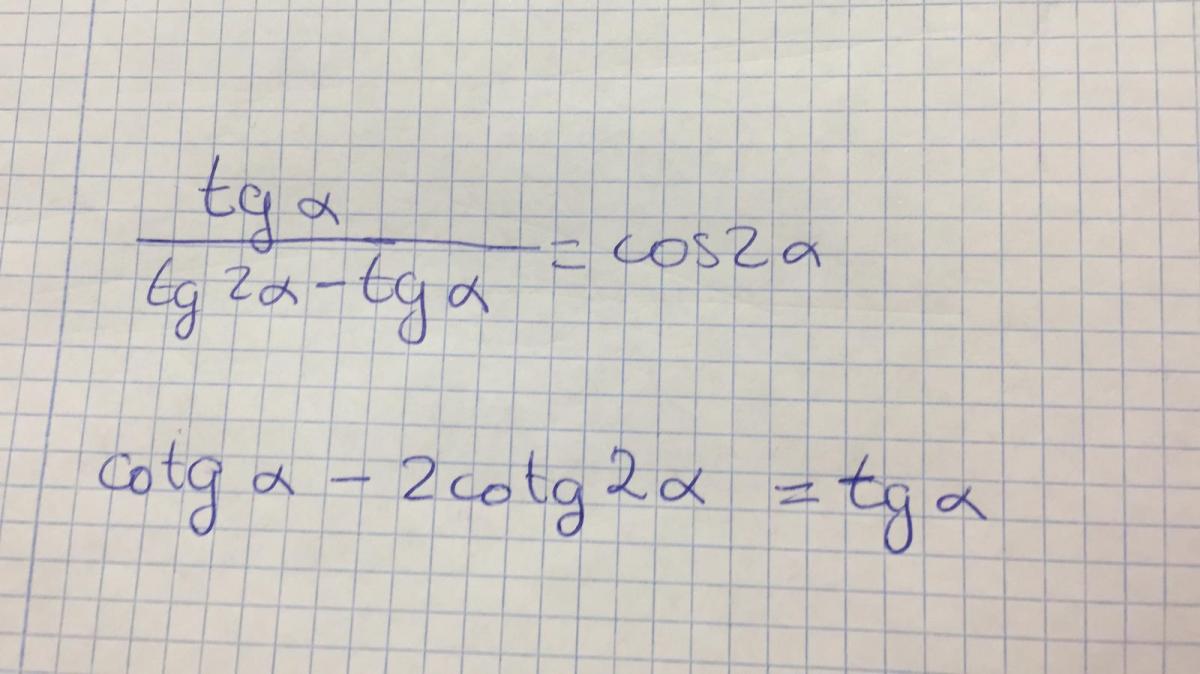 tg α
tg 2α - tg α = cos2α
cotg α - 2cotg 2α = tg α